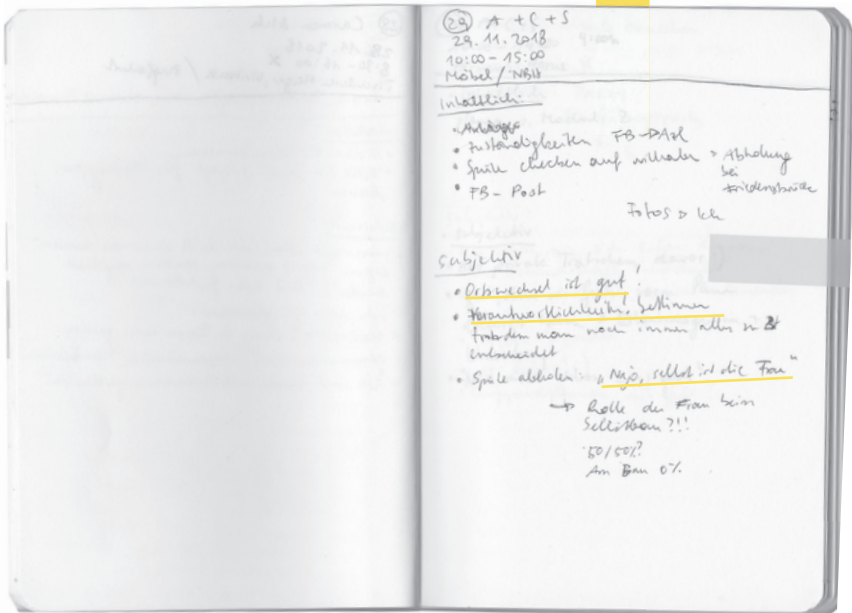 29 A + C + S
29.11.2018
10:00 - 15:00
Möbel / NBH
Inhaltlich:
• Zuständigkeiten FB →
• Spüle checken auf willhaben → Abholung
bei
Friedensbrücke
• FB - Post
Fotos → Ich
Subjektiv
• Ortswechsel ist gut!
• Verantwortlichkeiten! bestimmen
trotzdem man noch immer alles zu 3t
entscheidet
• Spüle abholen: „Najo, selbst ist die Frau"
→ Rolle der Frau beim
Selbstbau?!!
50/50%?
Am Bau 0%